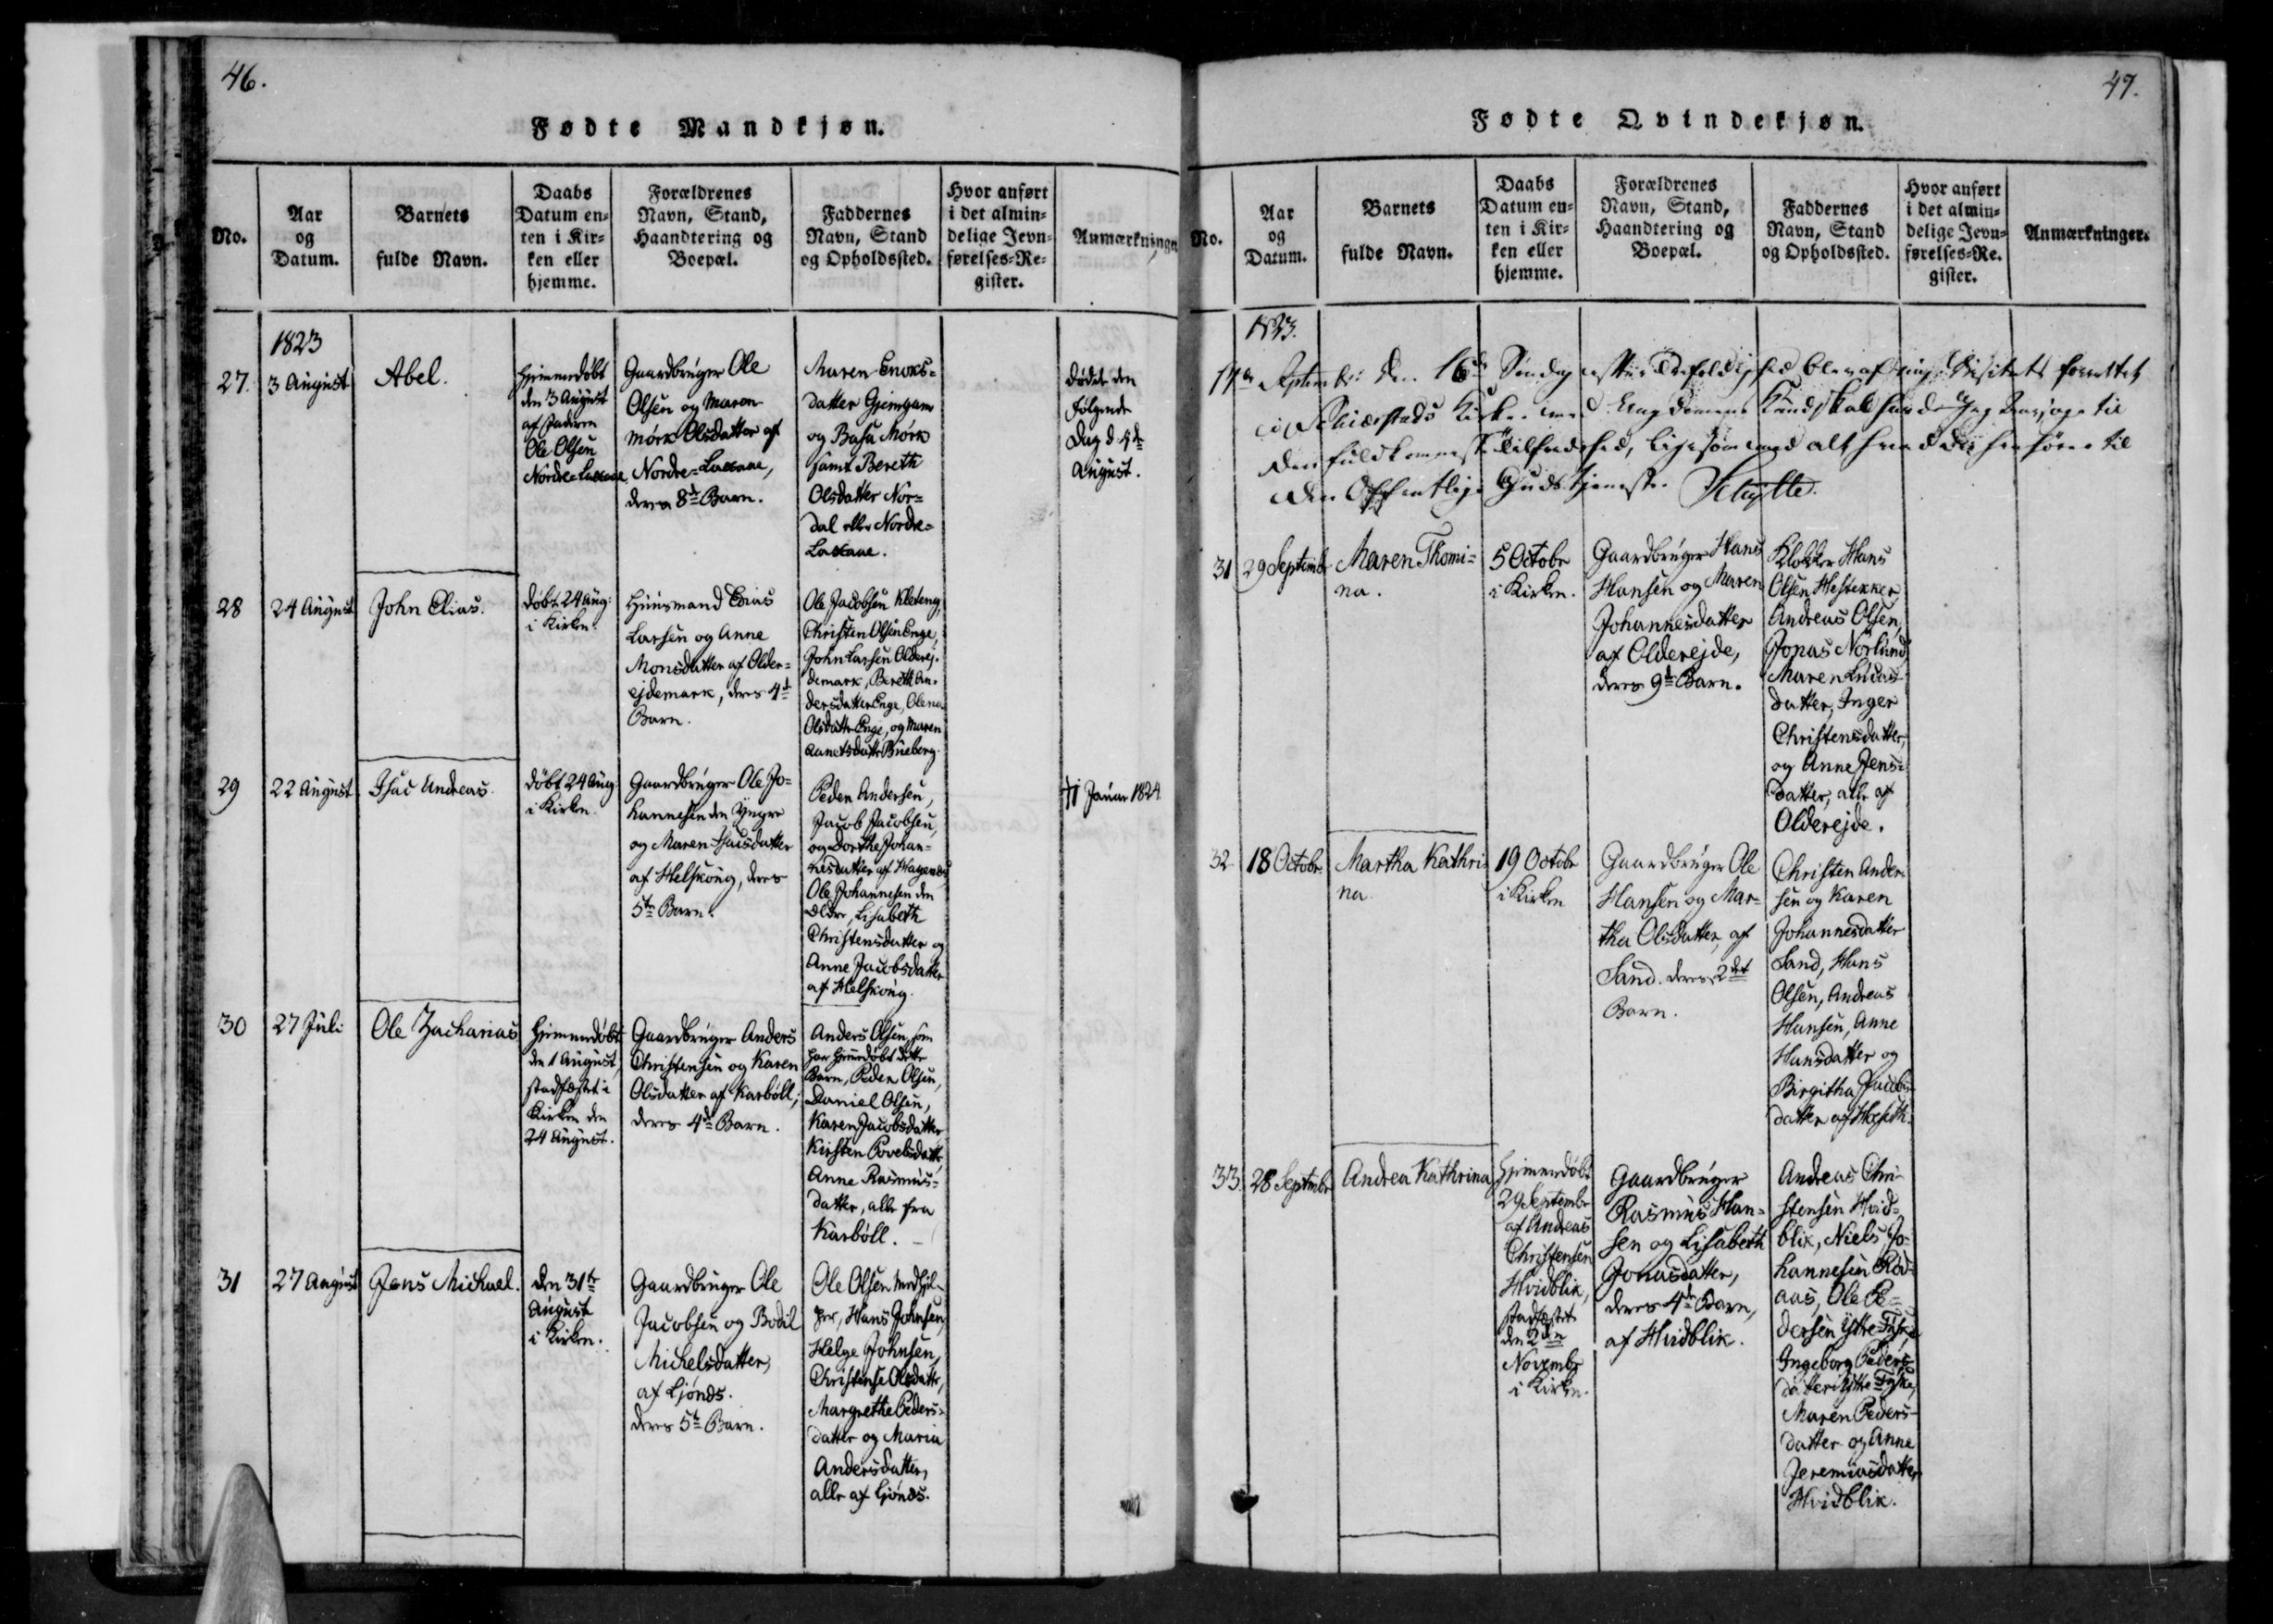 46.
Fødte Mandkjøn.
No.
Aar
og
Datum.
Barnets
fulde Navn.
Daabs
Datum en-
ten i Kir-
ken eller
hjemme.
Forældrenes
Navn, Stand,
Haandtering og
Boepæl.
Faddernes
Navn, Stand
og Opholdssted.
Hvor anført
i det almin-
delige Jevn-
førelses-Re-
gister.
Anmærkninger
1823
27.
3 August
Abel.
Hjemmedøbt
den 3 August
af Faderen
Ole Olsen
Nordre-
Gaardbruger Ole
Olsen og Maren
Mørk Olsdatter af
Nordre-
deres 8de Barn.
Maren Enoks-
datter
og Mørk
samt Bereth
Olsdatter Nor-
dal eller Nordre-
Døde den
følgende
Dag d. 4de
August.
28
24 August
John Elias.
døbt 24 Aug:
i Kirken.
Huusmand
Larsen og Anne
Monsdatter af Older-
ejdemark, deres 4de
Barn.
Ole Jacobsen
Christen Olsen Enge,
John Larsen Olderej-
demark, Bereth An-
dersdatter Enge, Olena
Olsdatter Enge, og Maren
29
22 August
Isac Andreas.
døbt 24 Aug:
i Kirken.
Gaardbruger Ole Jo-
hannesen den Yngre
og Maren Isacsdatter
af Helskoug, deres
5te Barn.
Peder Andersen,
Jacob Jacobsen,
og Dorthe Johan-
nesdatter af
Ole Johannesen den
Ældre, Lisabeth
Christensdatter og
Anne Jacobsdatter
af Helskoug.
Januar 1824
30
27 Juli
Ole Zacharias
Hjemmedøbt
den 1 August,
stadfæstet i
Kirken den
24 August.
Gaardbruger Anders
Christensen og Karen
Olsdatter af Karbøll,
deres 4de Barn.
Anders Olsen, som
har hjemmedøbt dette
Barn, Peder Olsen,
Daniel Olsen,
Karen Jacobsdatter
Kirsten Povelsdatter
Anne Rasmus-
datter, alle fra
Karbøll.
31
27 August
Jens Michael.
den 31te
August
i Kirken.
Gaardbruger Ole
Jacobsen og Bodil
Michelsdatter,
af Ljønds.
deres 5te Barn.
Ole Olsen Medhjel-
per, Hans Johnsen,
Helge Johnsen,
Christense Olsdatter,
Margrethe Peders-
datter og Maria
Andersdatter,
alle af Ljønds.
47.
Fødte Qvindekjøn.
No.
Aar
og
Datum.
Barnets
fulde Navn.
Daabs
Datum en-
ten i Kir-
ken eller
hjemme.
Forældrenes
Navn, Stand,
Haandtering og
Boepæl.
Faddernes
Navn, Stand
og Opholdssted.
Hvor anført
i det almin-
delige Jevn-
førelses-Re-
gister.
Anmærkninger.
1823.
14de September den 16de Søndag efter Trefoldighed blev af mig Visitats forrettet
i Kirke med Ungdommens Kundskab fandt jeg til
den fuldkomneste Tilfredshed, ligesom med alt hvad der henhører til
den Offentlige Gudstjeneste.
31
29 Septembr
Maren Thomi-
na.
5 Octobr
i Kirken.
Gaardbruger Hans
Hansen og Maren
Johannesdatter
af Olderejde,
deres 9de Barn.
Klokker Hans
Olsen
Andreas Olsen,
Jonas Norlund,
Maren Lucas-
datter, Inger
Christensdatter,
og Anne Jens-
datter, alle af
Olderejde.
32
18 Octobr
Martha Kathri
na.
19 Octobr
i Kirken
Gaardbruger Ole
Hansen og Mar-
tha Olsdatter, af
Sand. deres 2det
Barn.
Christen Ander-
sen og Karen
Johannesdatter
Sand, Hans
Olsen, Andreas
Hansen, Anne
Hansdatter og
Birgitha Jacobs-
datter af
33
28 Septmbr
Andrea Kathrina
Hjemmedøbt
29 Septembr
af Andreas
Christensen
Hvidblik,
stadfæstet
den 2den
Novembr
i Kirken.
Gaardbruger
Rasmus Han-
sen og Lisabeth
Jonasdatter,
deres 4de Barn,
af Hvidblik.
Andreas Chri-
stensen Hvid-
blik, Niels Jo-
hannesen Rød-
aas, Ole Pe-
dersen Yttre-
Ingeborg Peders-
datter Yttre-
Maren Peders-
datter og Anne
Jeremiasdatter
Hvidblik.